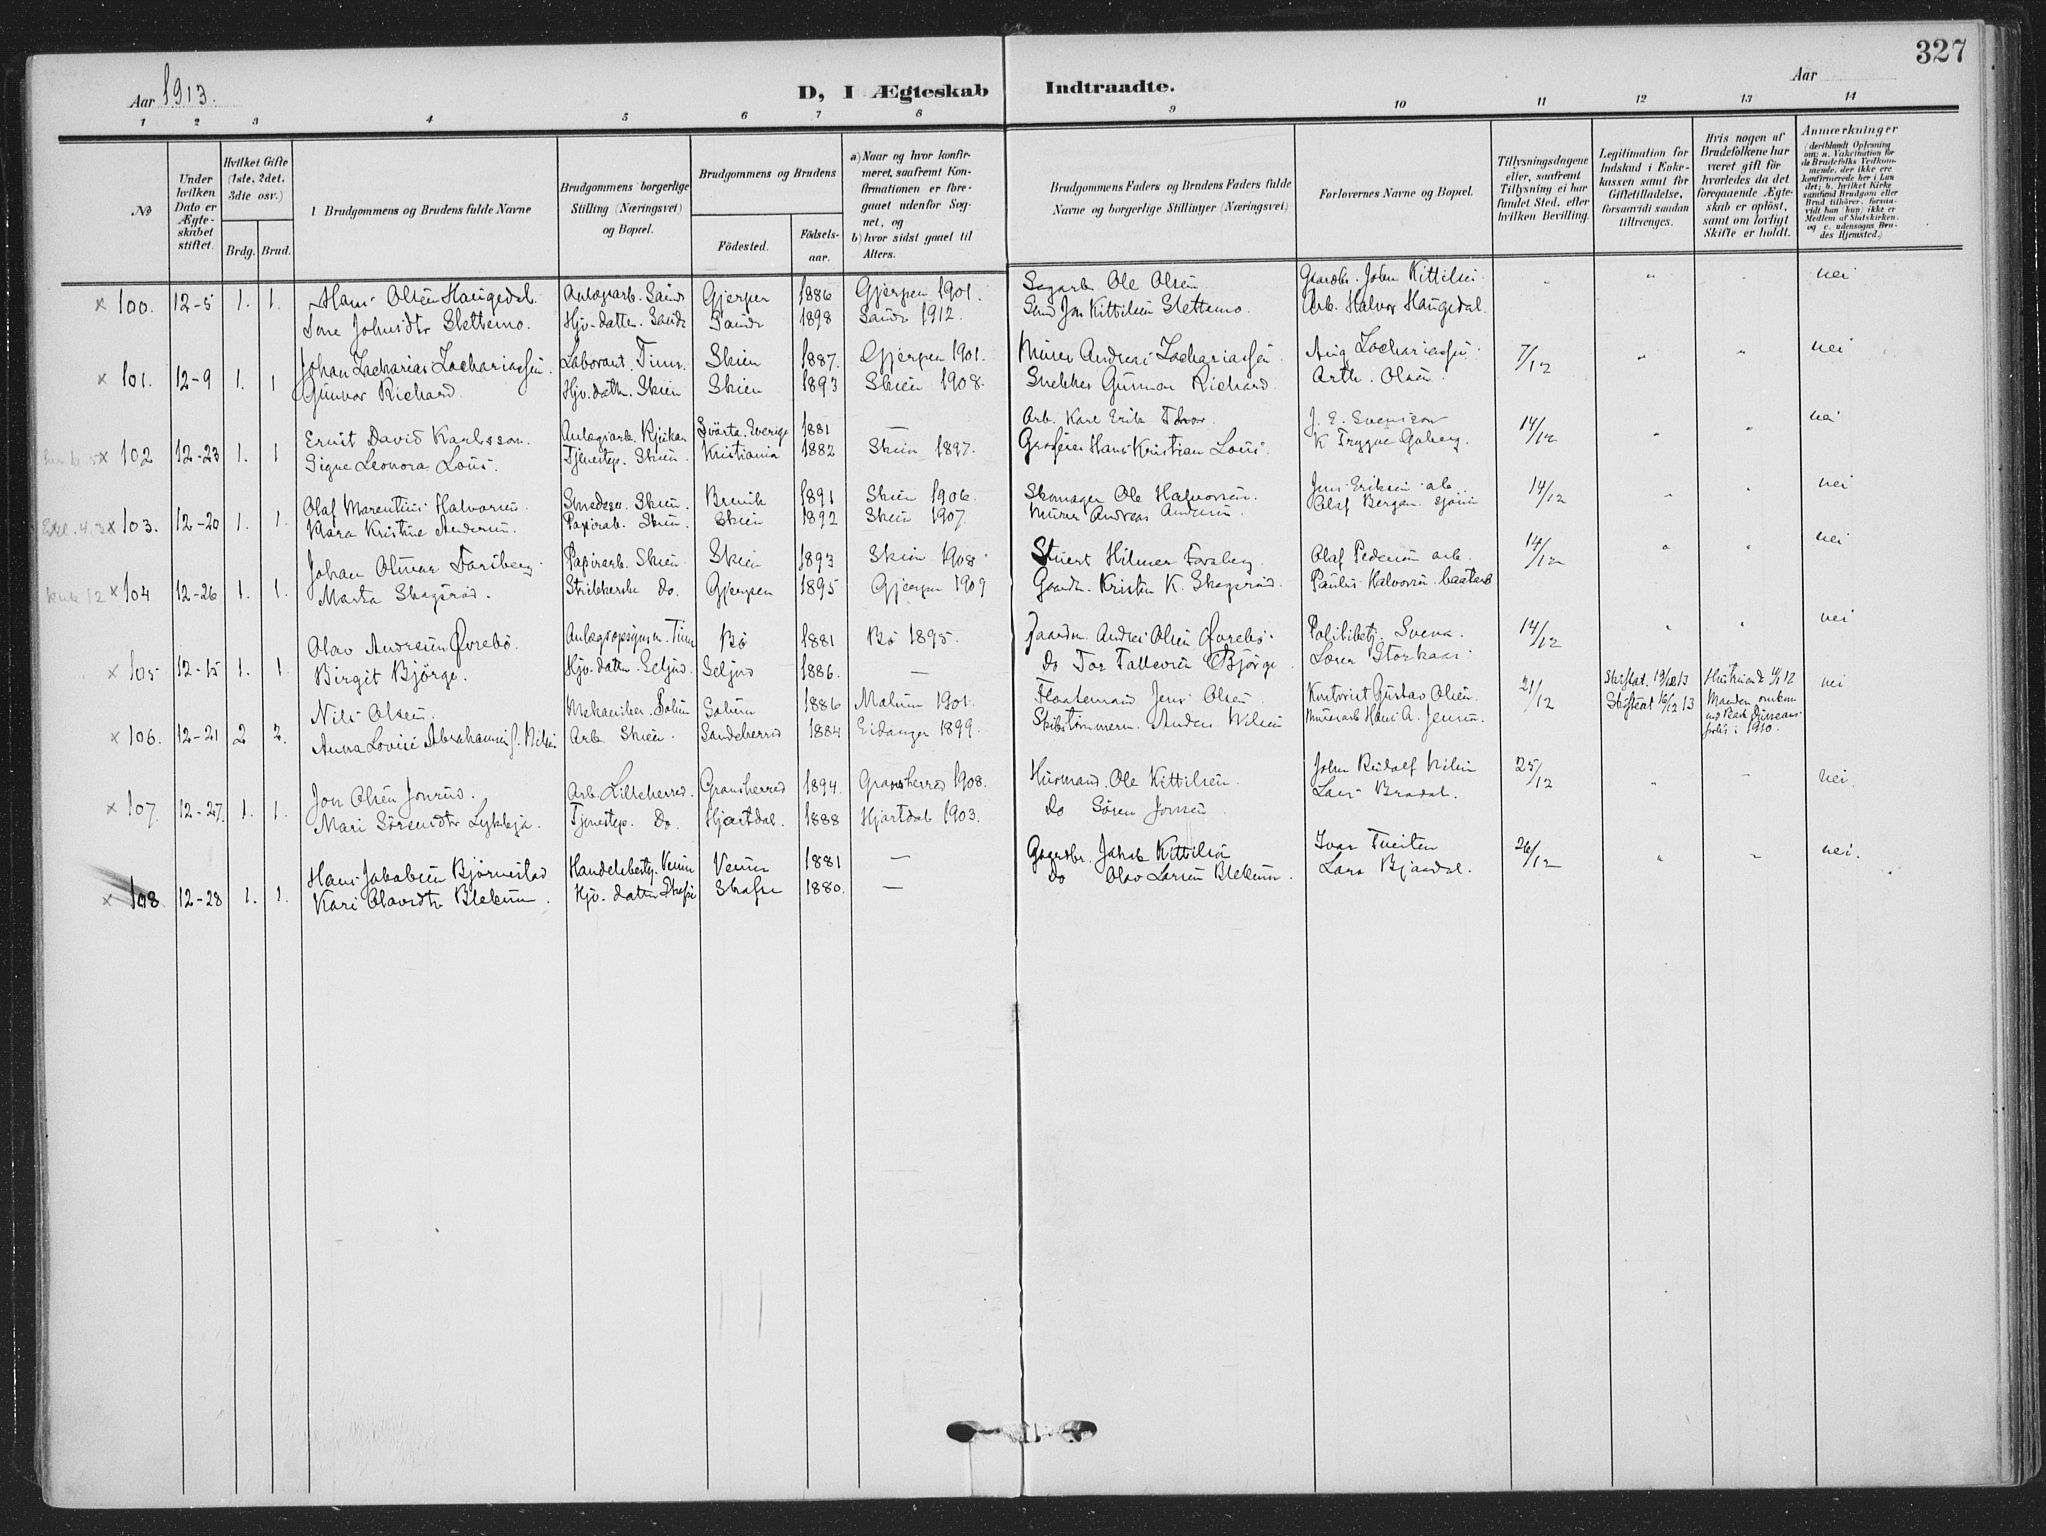 327
Aar 1913.
D, I Ægteskab Indtraadte.
Aar
1 2 3 4 5 6 7 8 9 10 11 12 13 14
No
Under hvilken Dato er Ægteskabet stiftet.
Hvilket Gifte (1ste, 2det, 3die osv.)
Brdg. Brud.
Brudgommens og Brudens fulde Navne
Brudgommens borgerlige Stilling (Næringsvei) og Bopæl.
Brudgommens og Brudens
Fødested.
Fødselsaar.
a) Naar og hvor konfirmeret, saafremt Konfirmationen er foregaaet udenfor Sognet, og
b) hvor sidst gaaet til Alters.
Brudgommens Faders og Brudens Faders fulde Navne og borgerlige Stillinger (Næringsvei)
Forlovernes Navne og Bopæl.
Tillysningsdagene eller, saafremt Tillysning ei har fundet Sted, efter hvilken Bevilling.
Legitimation for Indskud i Enkekassen samt for Giftetilladelse, forsaavidt saadan tiltrænges.
Hvis nogen af Brudefolkene har været gift før hvorledes da det foregaaende Ægteskab er opløst, samt om lovligt Skifte er holdt.
Anmærkninger
x 100. 12-5 1. 1. Hans Olsen Haugedal Anlægsarb. Sande Gjerpen 1886 Gjerpen 1901. Sagarb. Ole Olsen Gaardbr. John Kittilsen " nei
Tone Johnsdtr Slettemo. Hjv. datter. Sande Sande 1898 Sande 1912. Jon Kittilsen Slettemo. Arb. Halvor Haugedal.
x 101. 12-9 1. 1 Johan Zacharias Zachariassen. Laborant Tinn. Skien 1887. Gjerpen 1901. Murer Andreas Zachariassen Aug Zachariassen 7/12 " " nei
Gunvor Richard Hjv. datt. Skien Skien 1893 Skien 1908. Snekker Gunnar Richard. Arth. Olsen.
x 102 12-23 1. 1 Ernst David Karlsson. Anlægsarb. Rjukan Svärta. Sverige 1881 — Arb. Karl Erik J. E. Svensson 14/12 " " nei
Signe Leonora Louis. Tjenestep. Skien. Kristiania 1882 Skien 1897. Hans Kristian Louis. K Trygve Goberg.
x 103. 12-20 1. 1 Olaf Marentius Halvorsen. Smedesv. Skien. Brevik 1891 Skien 1906. Skomager Ole Halvorsen. Jens Eriksen arb. 14/12 " " nei
Klara Kristine Andersen. Papirarb. Skien. Skien 1892 Skien 1907. Murer Andreas Andersen Olaf Bergan
x 104 12-26 1. 1. Johan Olmar Forsberg. Papirarb. Skien Skien 1893 Skien 1908 Stuert Hilmer Forsberg. Olaf Pedersen arb. 14/12 " " nei
Marta Skogsrød. Strikkerske do. Gjerpen 1895 Gjerpen 1909 Gaardm. Kristen K. Skogsrød. Paulus Halvorsen baatsb
x 105 12-15 1. 1. Olav Andersen Øvrebø. Anlægsopsynsm. Tinn Bø 1881 Bø 1895. Gaardm. Andres Olsen Øvrebø. Politibetj. Svenk. 14/12 " " nei
Birgit Bjørge. Hjv. datter. Seljord Seljord 1886. — Do Tor Tallevsen Bjørge. Lærer Storkaas.
x 106. 12-21 2 2. Nils Olsen Mekaniker. Solum Solum 1886 Melum 1901. Fløtemand Jens Olsen Kontorist Gustav Olsen. 21/12 Skifteat. 19/12 13 Hustruen d 4/1 12 nei
Anna Lovise Abrahamsen f. Nilsen Arb. Skien. Sandeherred 1884 Eidanger 1899. Skibstømmerm. Anders Nilsen Murerarb Hans A. Jensen. Skifteat 16/12 13 Manden omkom i 1910.
x 107. 12-27. 1. 1. Jon Olsen Jonrud. Arb. Lilleherred. Gransherred 1894. Gransherred 1908. Husmand Ole Kittilsen. John Rudolf Nilsen 25/12 " " nei.
Mari Sørensdtr Lykkja. Tjenestep. Do. Hjartdal. 1888 Hjartdal 1903. Do Søren Jonsen Lars Bradal.
x 108 12-28 1. 1. Hans Jakobsen Bjørnstad Handelsbetj. Vemn 1881 — Gaardbr. Jakob Kittilsen Ivar Tveiten 26/12 " " nei.
Kari Olavsdtr Blekum. Hjv. datter Skafse Skafse 1880. — Do Olav Larsen Blekum. Lars Bjaadal.